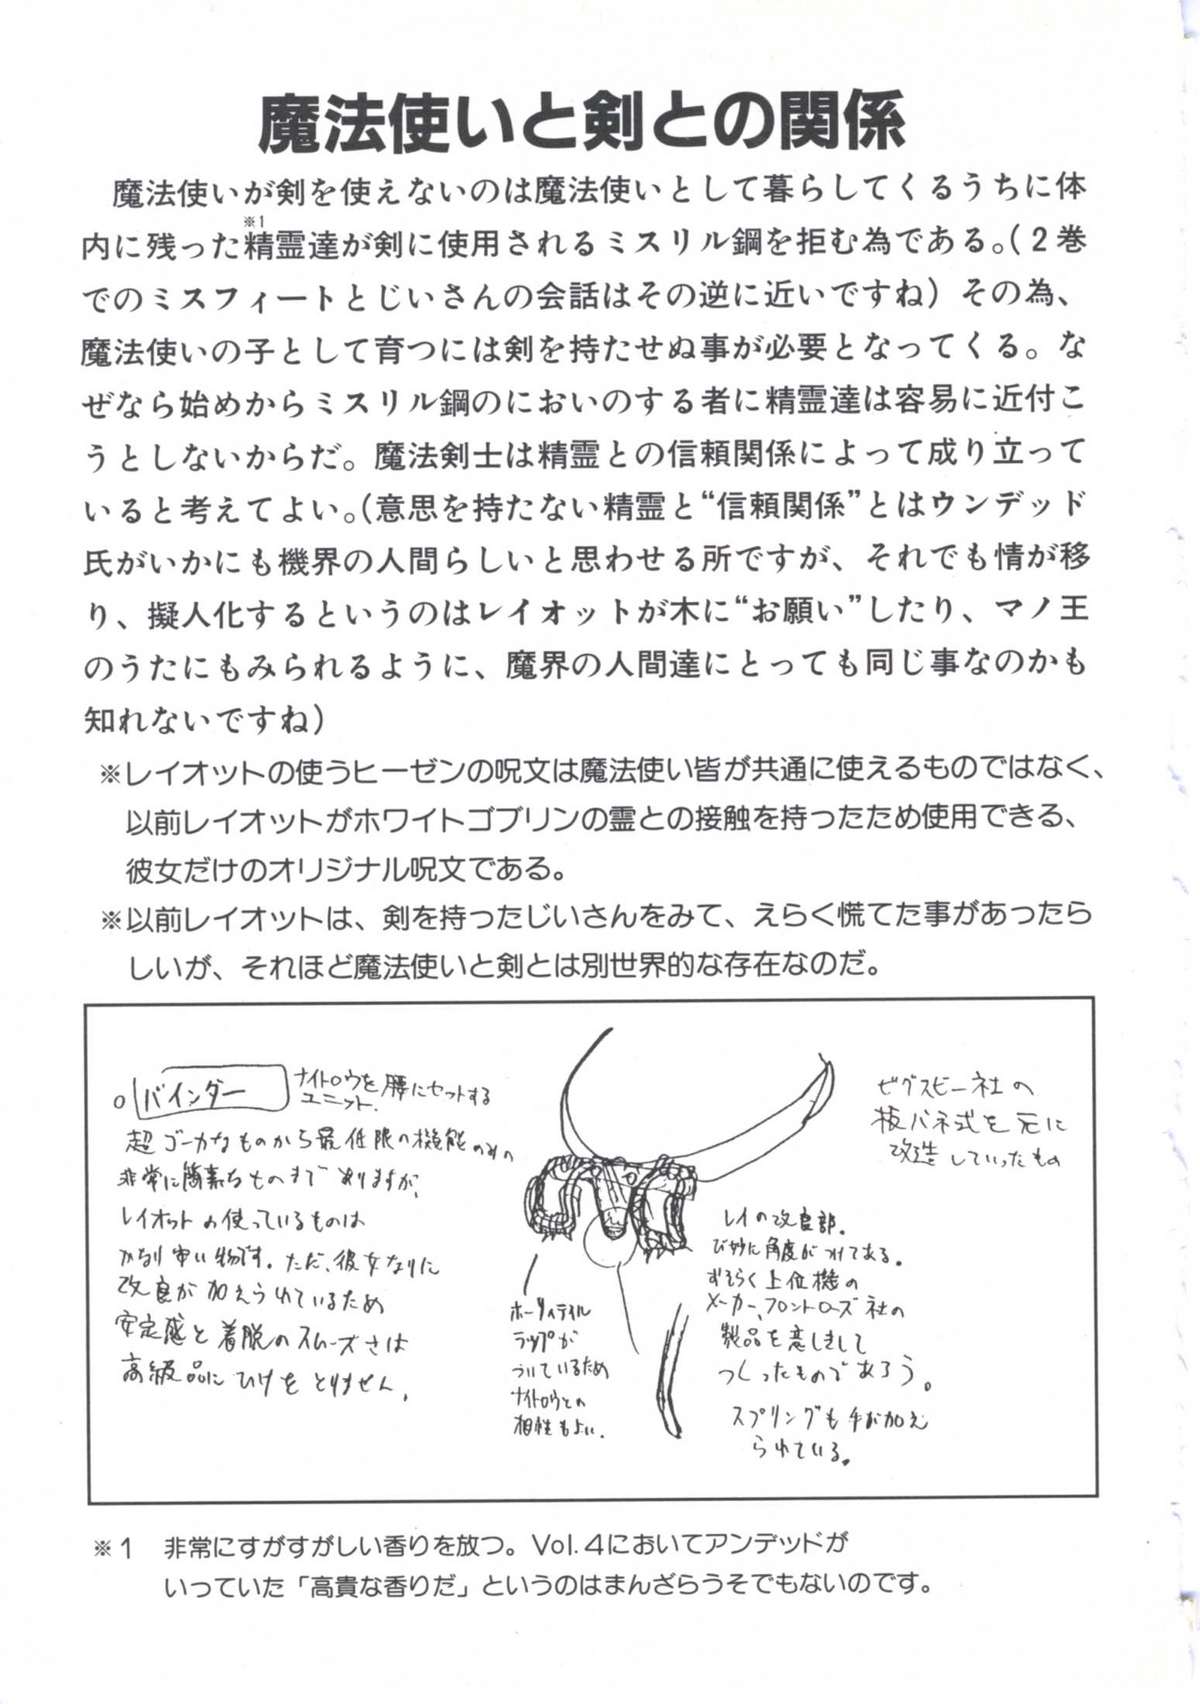 魔法使いと剣との関係
魔法使いが剣を使えないのは魔法使いとして暮らしてくるうちに体
※1
内に残った精霊達が剣に使用されるミスリル鋼を拒む為である。(2巻
でのミスフィートとじいさんの会話はその逆に近いですね)その為、
魔法使いの子として育つには剣を持たせぬ事が必要となってくる。な
ぜなら始めからミスリル鋼のにおいのする者に精霊達は容易に近付こ
うとしないからだ。魔法剣士は精霊との信頼関係によって成り立って
いると考えてよい。(意思を持たない精霊と“信頼関係”とはウンデッド
氏がいかにも機界の人間らしいと思わせる所ですが、それでも情が移
り、擬人化するというのはレイオットが木に“お願い”したり、マノ王
のうたにもみられるように、魔界の人間達にとっても同じ事なのかも
知れないですね)
※レイオットの使うヒーゼンの呪文は魔法使い皆が共通に使えるものではなく、
以前レイオットがホワイトゴブリンの霊との接触を持ったため使用できる、
彼女だけのオリジナル呪文である。
※以前レイオットは、剣を持ったじいさんをみて、えらく慌てた事があったら
しいが、それほど魔法使いと剣とは別世界的な存在なのだ。
○バインダー
ナイトロウを腰にセットする
ユニット.
超ゴーカなものから最低限の機能のみの
非常に簡素なものまでありますが、
レイオットの使っているものは
かなり安い物です。ただ、彼女なりに
改良が加えられているため
安定感と着脱のスムーズさは
高級品にひけをとりません。
ビグスビー社の
板バネ式を元に
改造していったもの
ホースティル
ラップが
ついているため
ナイトロウとの
相性もよい.
レイの改良部.
び妙に角度がつけてある。
おそらく上位機の
メーカー、フロントローズ社の
製品を意しきして
つくったものであろう。
スプリングも手が加え
られている。
※1 非常にすがすがしい香りを放つ。Vol.4においてアンデッドが
いっていた「高貴な香りだ」というのはまんざらうそでもないのです。